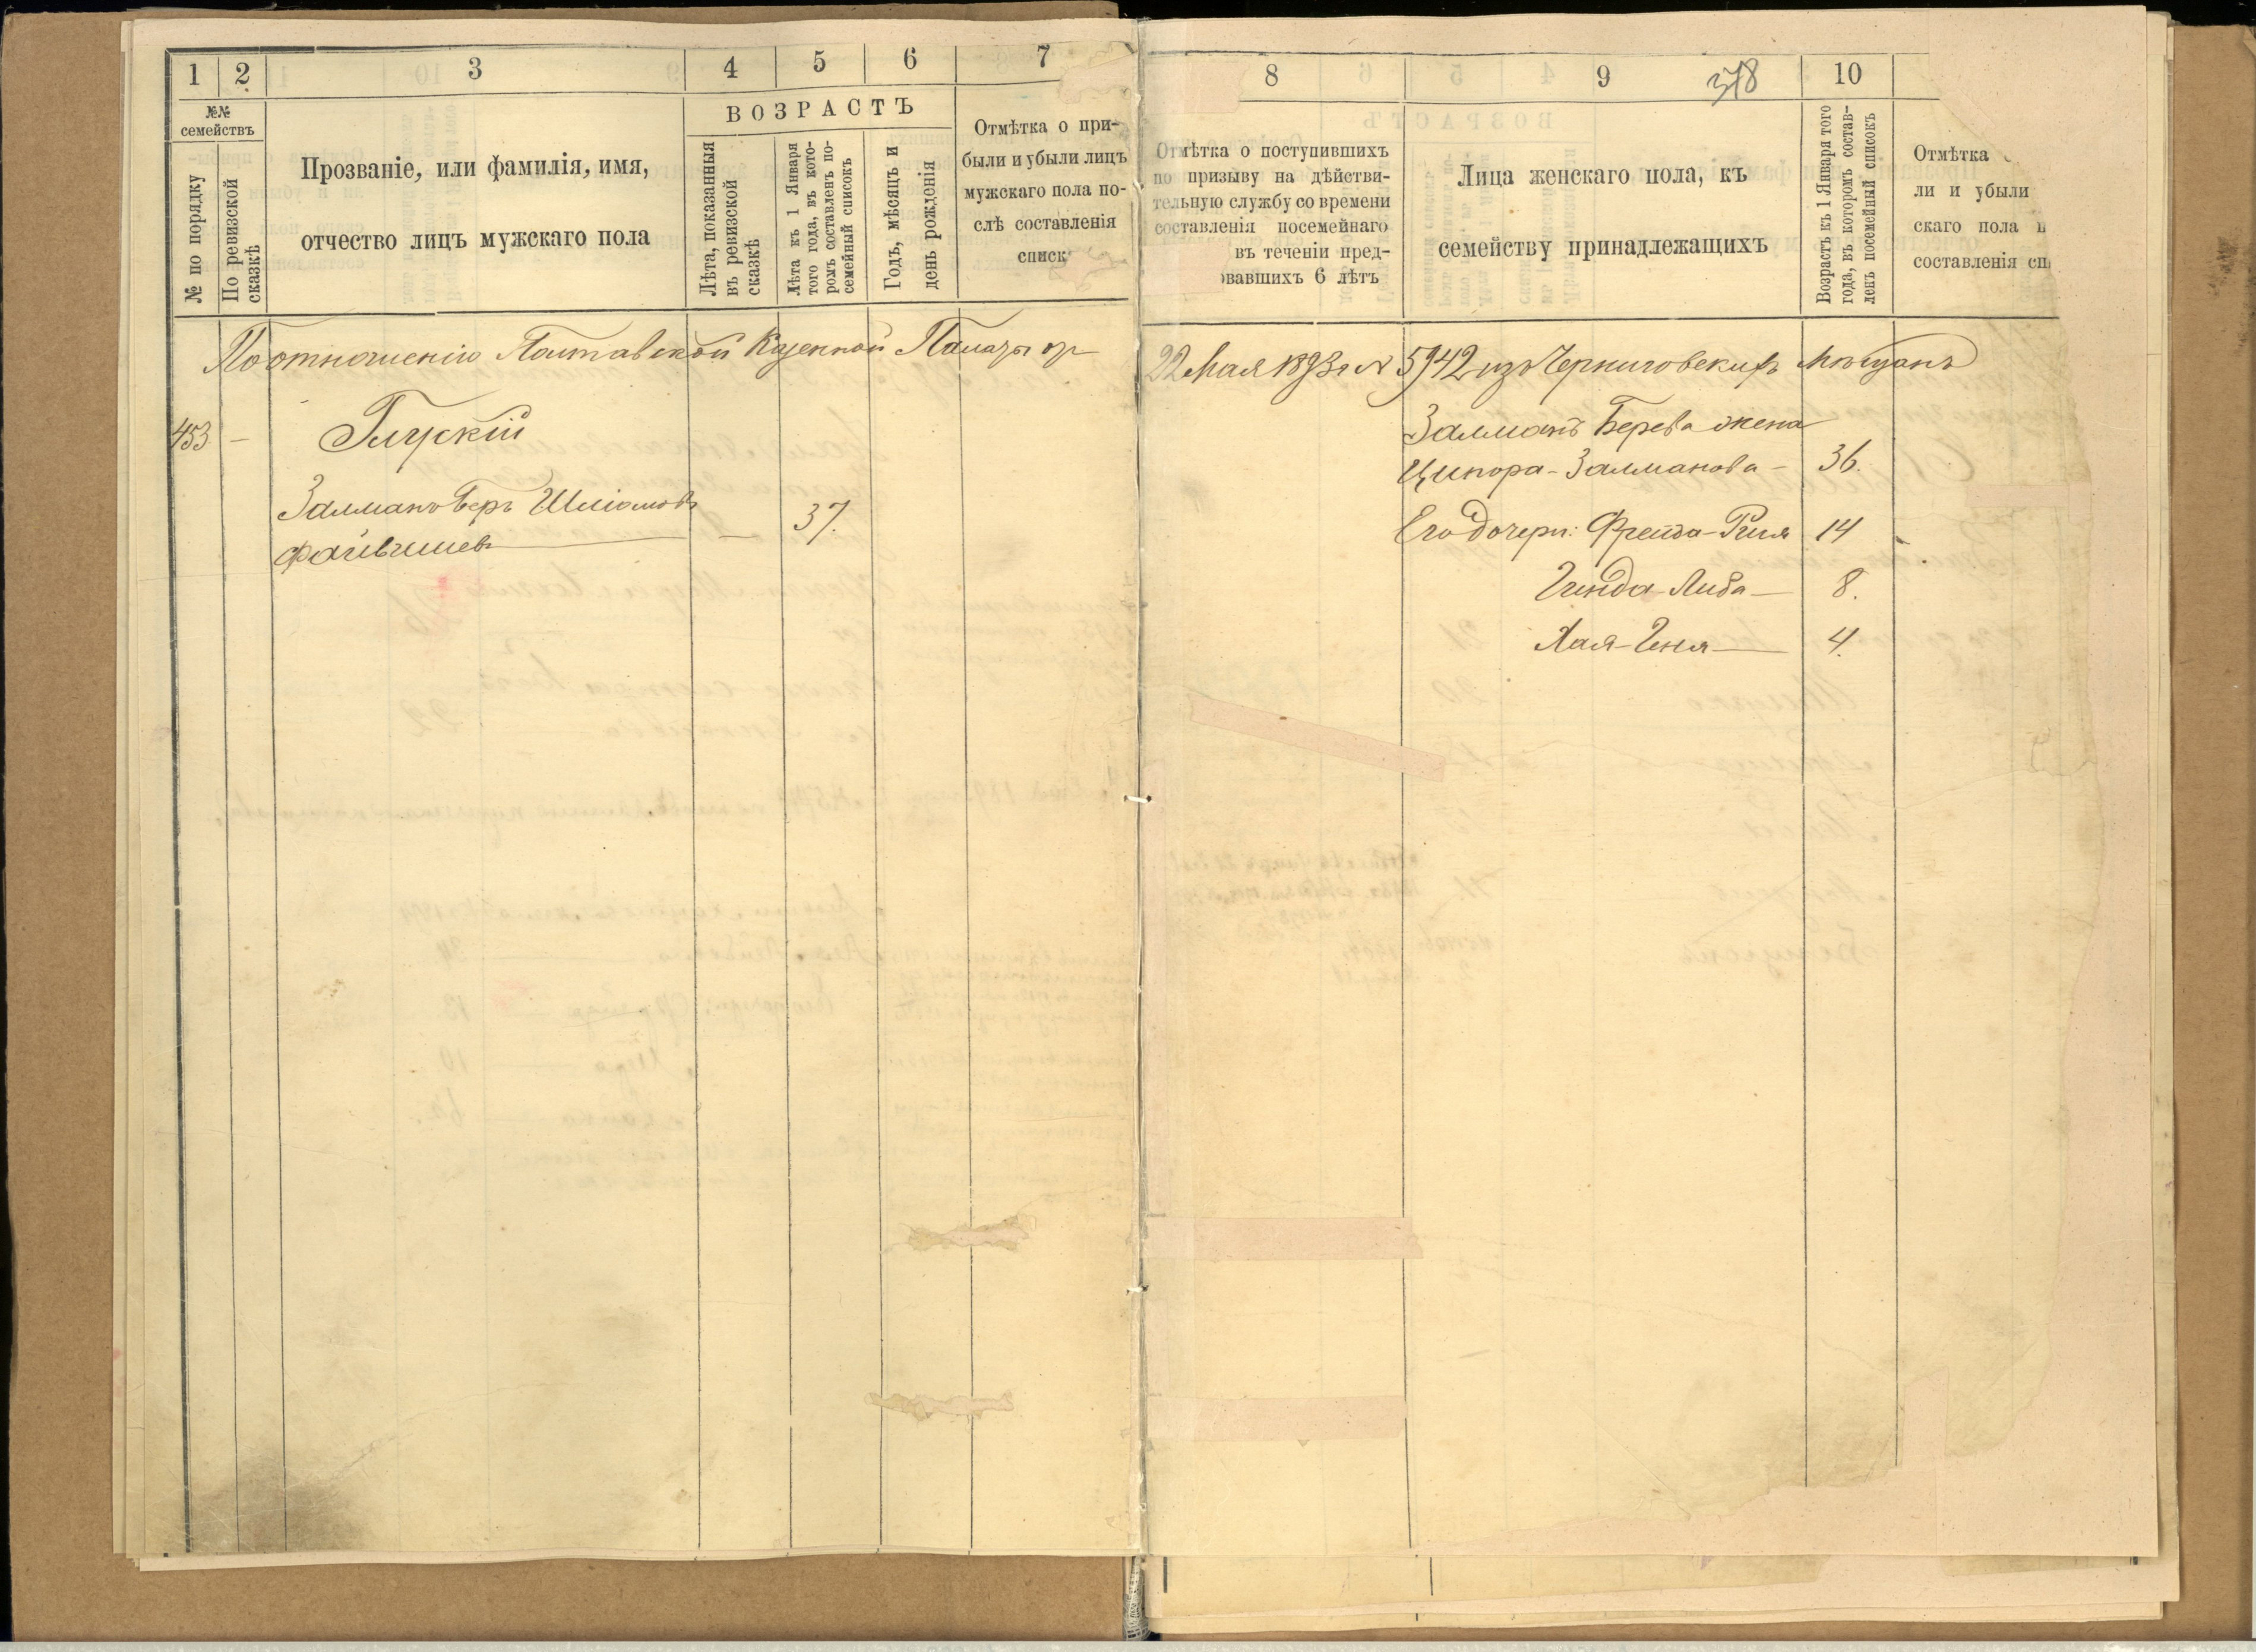 1 2 3 4 5 6 7
№№ семействъ
№ по порядку
По ревизской сказкѣ
Прозваніе, или фамилія, имя,
отчество лицъ мужскаго пола
ВОЗРАСТЪ
Лѣта, показанныя
въ ревизской
сказкѣ
Лѣта къ 1 Января
того года, въ кото-
ромъ составленъ по-
семейный списокъ
Годъ, мѣсяцъ и
день рожденія
Отмѣтка о при-
были и убыли лицъ
мужскаго пола по-
слѣ составленія
списк
8 9 378 10
Отмѣтка о поступившихъ
по призыву на дѣйстви-
тельную службу со времени
составленія посемейнаго
въ теченіи пред-
овавшихъ 6 лѣтъ
Лица женскаго пола, къ
семейству принадлежащихъ
Возрастъ къ 1 Января того
года, въ которомъ состав-
ленъ посемейный списокъ
Отмѣтка
ли и убыли
скаго пола п
составленія сп
По отношенію Полтавской Казенной Палаты от 22 Мая 1893 г № 5942 изъ Черниговскихъ Мѣщанъ
453 — Глускій
Залманъ Беръ Шліомовъ
Файвишев — 37.
Залманъ Берева жена
Ципора-Залманова — 36.
Его дочери: Фрейда-Риля 14
Гинда-Либа — 8.
Хая-Геня — 4.